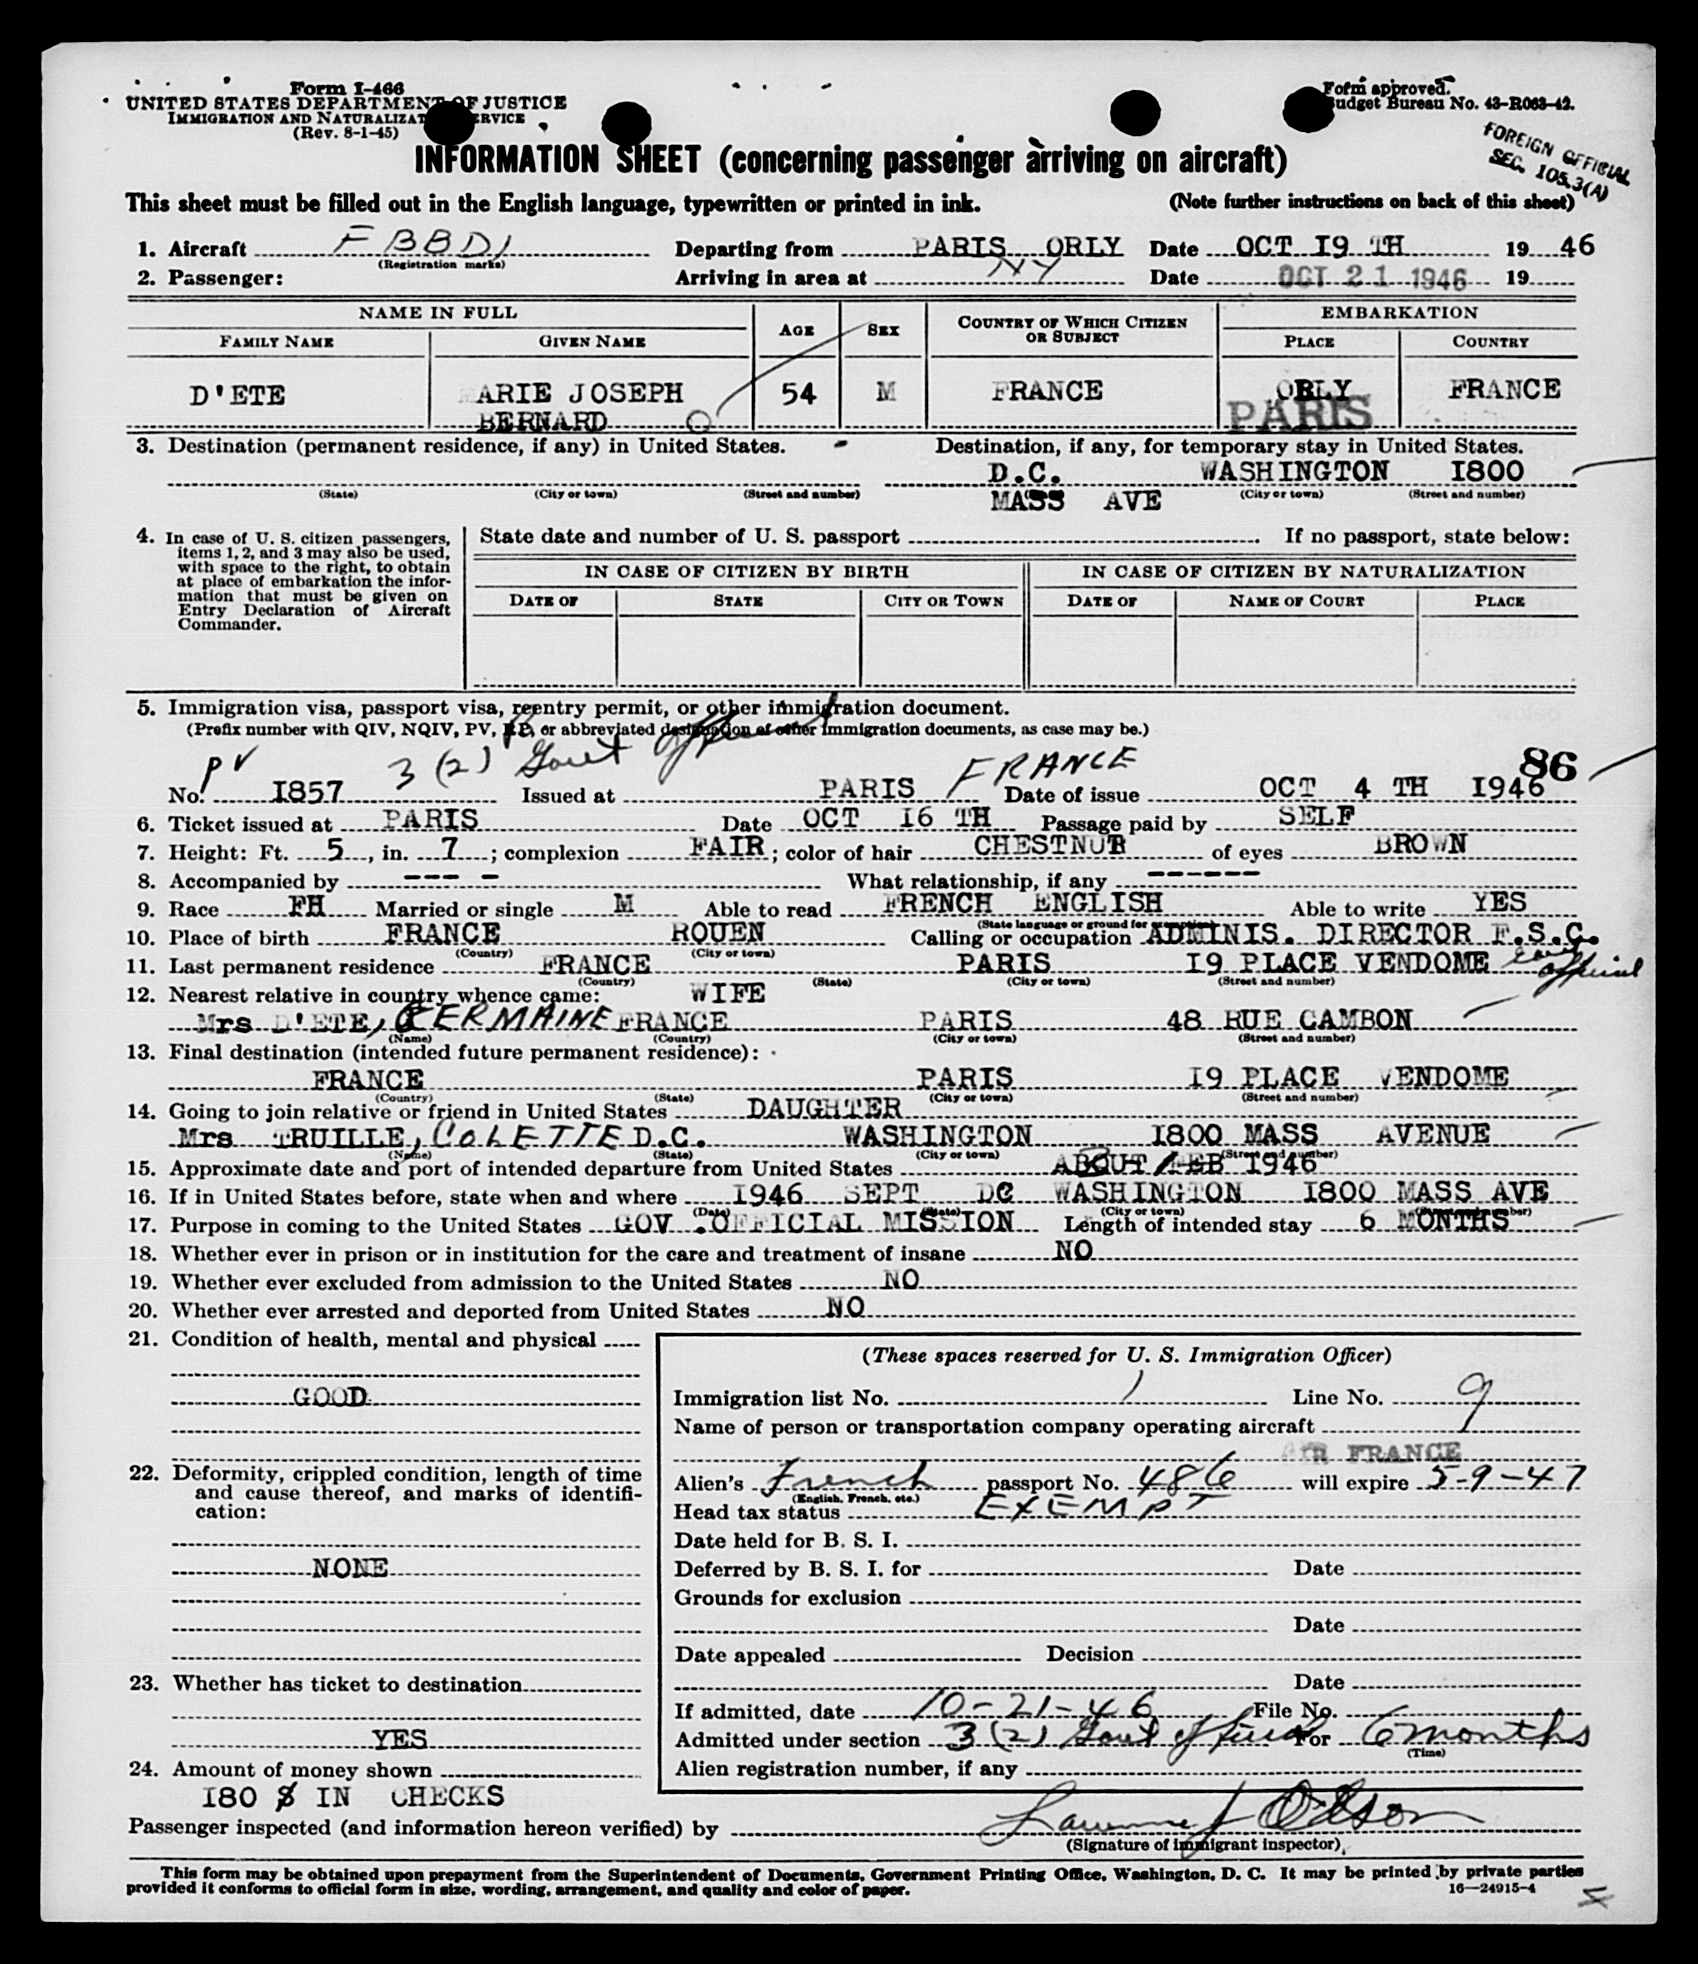 Form I-466
UNITED STATES DEPARTMENT OF JUSTICE
IMMIGRATION AND NATURALIZATION SERVICE
(Rev. 8-1-45)
Form approved.
Budget Bureau No. 43-R063-42.
FOREIGN OFFICIAL
SEC. 105.3(A)
INFORMATION SHEET (concerning passenger arriving on aircraft)
This sheet must be filled out in the English language, typewritten or printed in ink. (Note further instructions on back of this sheet)
1. Aircraft F BBDI Departing from PARIS ORLY Date OCT I9 TH 19 46
(Registration marks)
2. Passenger: Arriving in area at NY Date OCT 21 1946 19
NAME IN FULL AGE SEX COUNTRY OF WHICH CITIZEN OR SUBJECT EMBARKATION
FAMILY NAME GIVEN NAME PLACE COUNTRY
D'ETE MARIE JOSEPH 54 M FRANCE ORLY FRANCE
BERNARD PARIS
3. Destination (permanent residence, if any) in United States. Destination, if any, for temporary stay in United States.
D.C. WASHINGTON I800
(State) (City or town) (Street and number) MASS AVE (City or town) (Street and number)
4. In case of U. S. citizen passengers, items 1, 2, and 3 may also be used, with space to the right, to obtain at place of embarkation the information that must be given on Entry Declaration of Aircraft Commander.
State date and number of U. S. passport If no passport, state below:
IN CASE OF CITIZEN BY BIRTH IN CASE OF CITIZEN BY NATURALIZATION
DATE OF STATE CITY OR TOWN DATE OF NAME OF COURT PLACE
5. Immigration visa, passport visa, reentry permit, or other immigration document.
(Prefix number with QIV, NQIV, PV, RP, or abbreviated designation of other immigration documents, as case may be.)
PV 3 (2) Govt official FRANCE 86
No. I857 Issued at PARIS Date of issue OCT 4 TH I946
6. Ticket issued at PARIS Date OCT I6 TH Passage paid by SELF
7. Height: Ft. 5, in. 7; complexion FAIR; color of hair CHESTNUT of eyes BROWN
8. Accompanied by --- - What relationship, if any ------
9. Race FH Married or single M Able to read FRENCH ENGLISH Able to write YES
(State language or ground for exemption)
10. Place of birth FRANCE ROUEN Calling or occupation ADMINIS. DIRECTOR F.S.C.
(Country) (City or town)
official
11. Last permanent residence FRANCE PARIS I9 PLACE VENDOME
(Country) (State) (City or town) (Street and number)
12. Nearest relative in country whence came: WIFE
Mrs D'ETE, GERMAINE FRANCE PARIS 48 RUE CAMBON
(Name) (Country) (City or town) (Street and number)
13. Final destination (intended future permanent residence):
FRANCE PARIS I9 PLACE VENDOME
(Country) (State) (City or town) (Street and number)
14. Going to join relative or friend in United States DAUGHTER
Mrs TRUILLE, COLETTE D.C. WASHINGTON I800 MASS AVENUE
(Name) (State) (City or town) (Street and number)
15. Approximate date and port of intended departure from United States ABOUT FEB 1946
16. If in United States before, state when and where I946 SEPT DC WASHINGTON I800 MASS AVE
(Date) (State) (City or town) (Street and number)
17. Purpose in coming to the United States GOV .OFFICIAL MISSION Length of intended stay 6 MONTHS
18. Whether ever in prison or in institution for the care and treatment of insane NO
19. Whether ever excluded from admission to the United States NO
20. Whether ever arrested and deported from United States NO
21. Condition of health, mental and physical
GOOD
22. Deformity, crippled condition, length of time and cause thereof, and marks of identification:
NONE
23. Whether has ticket to destination
YES
24. Amount of money shown
I80 $ IN CHECKS
(These spaces reserved for U. S. Immigration Officer)
Immigration list No. 1 Line No. 9
Name of person or transportation company operating aircraft
AIR FRANCE
Alien's French passport No. 486 will expire 5-9-47
(English, French, etc.)
Head tax status EXEMPT
Date held for B. S. I.
Deferred by B. S. I. for Date
Grounds for exclusion
Date
Date appealed Decision
Date
If admitted, date 10-21-46 File No.
Admitted under section 3 (2) Govt official For 6 months
(Time)
Alien registration number, if any
Passenger inspected (and information hereon verified) by Lawrence J Olson
(Signature of immigrant inspector)
This form may be obtained upon prepayment from the Superintendent of Documents, Government Printing Office, Washington, D. C. It may be printed by private parties
provided it conforms to official form in size, wording, arrangement, and quality and color of paper. 16—24915-4